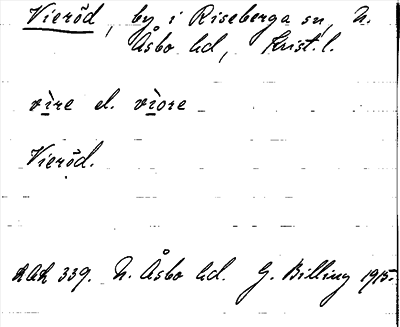 Vieröd, by i Riseberga sn, N.
Åsbo hd, Krist. l.
vìre el. vìore
Vieröd.
N. Åsbo hd. G. Billing 1915.